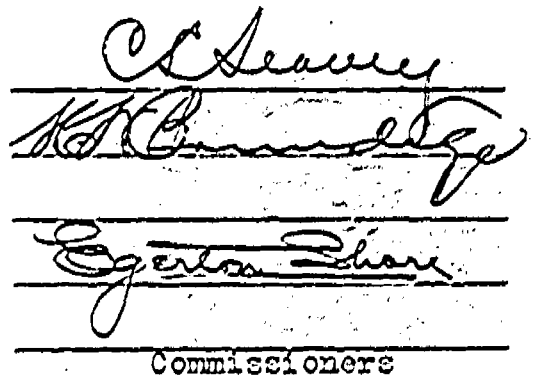 C L Seavey
H W Brundige
Egerton Shore
Commissioners